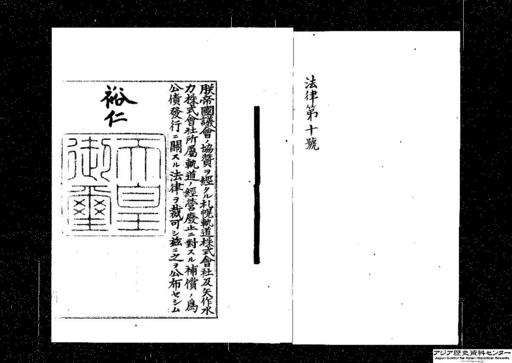 法律第十號
朕帝國議會ノ協贊ヲ經タル札幌軌道株式會社及矢作水
力株式會社所屬軌道ノ經營廢止ニ對スル補償ノ爲
公債發行ニ關スル法律ヲ裁可シ茲ニ之ヲ公布セシム
裕仁
天皇
御璽
アジア歴史資料センター
Japan Center for Asian Historical Records